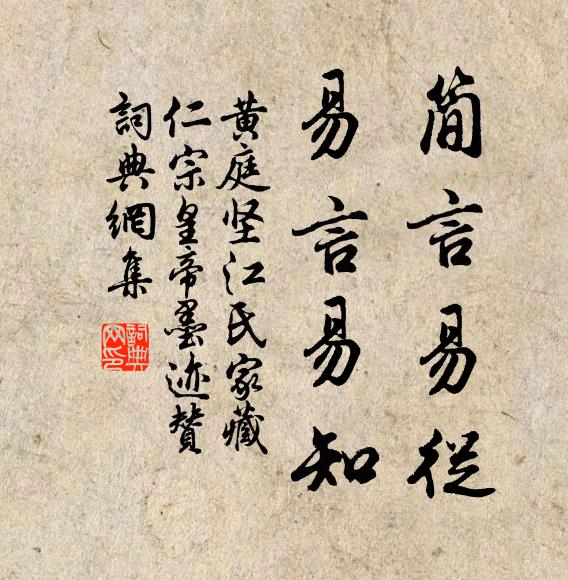 简言易從
易言易知
黄庭坚江氏家藏
仁宗皇帝墨迹贊
詞典網集
詞典
网印